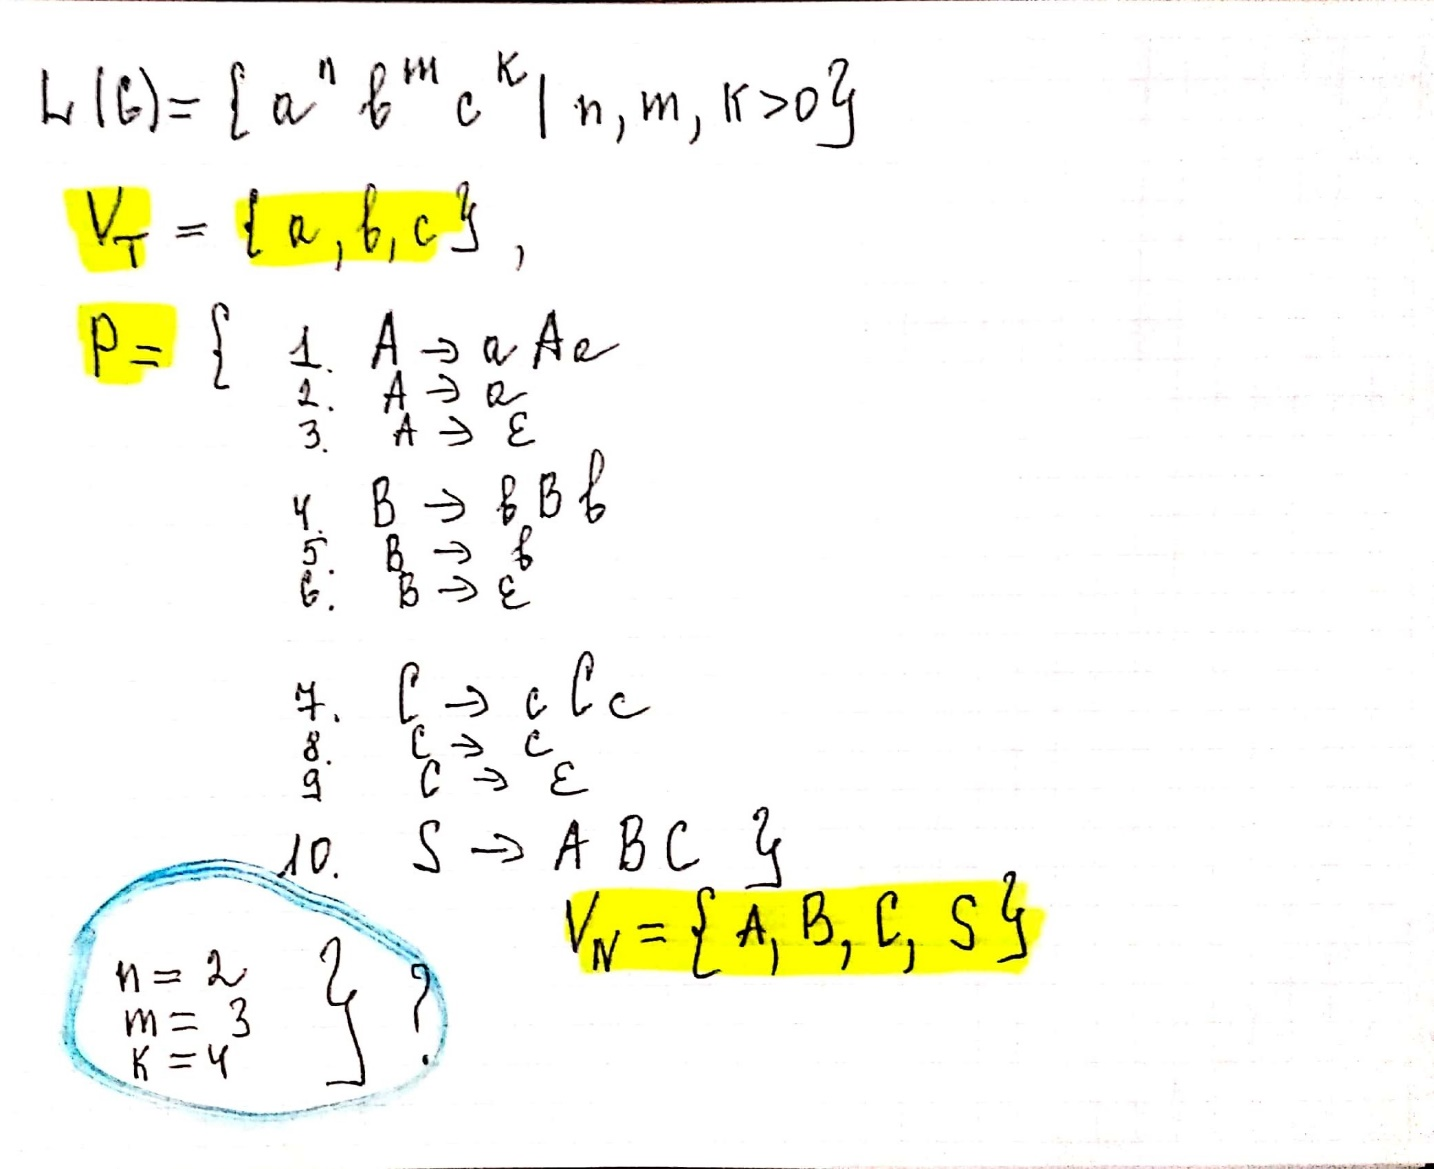 L(G)= { aⁿ bᵐ cᴷ | n, m, K>0}
V_T = {a, b, c},
P= { 1. A → a A a
2. A → a
3. A → ε
4. B → b B b
5. B → b
6. B → ε
7. C → c C c
8. C → c
9 C → ε
10. S → A B C }
V_N = { A, B, C, S }
n = 2
m = 3 } ?
K = 4